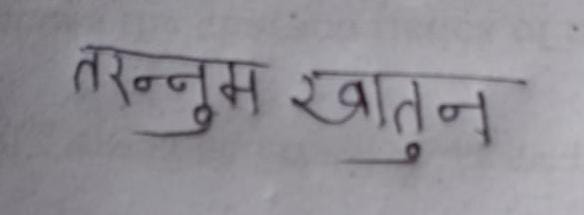 तरन्नुम खातुन